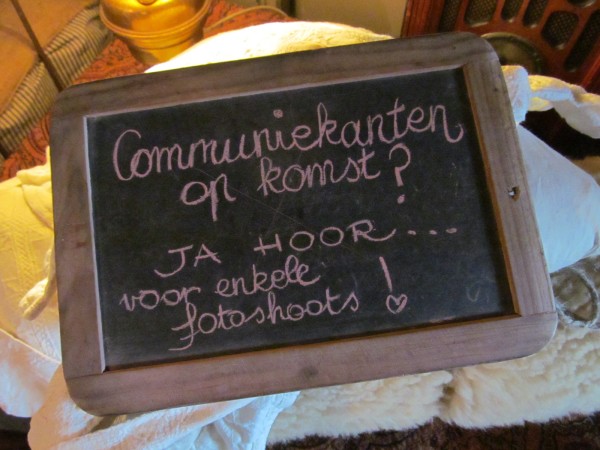 Communiekanten
op komst?
JA HOOR...
voor enkele
fotoshoots!